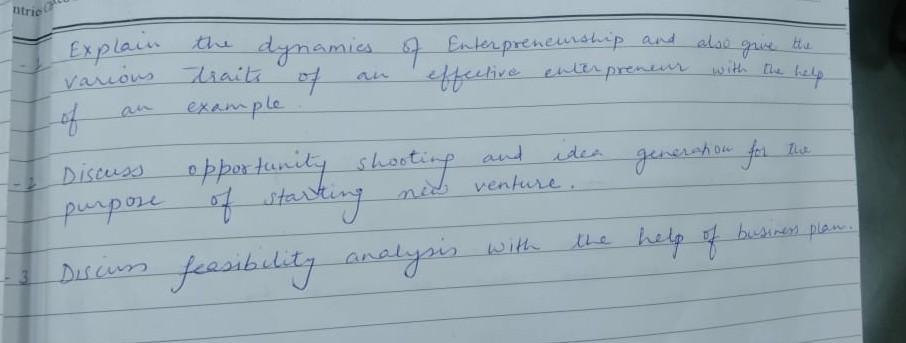 ntric
1 Explain the dynamics of Enterpreneurship and also give the
various traits of an effective enterpreneur with the help
of an example.
2 Discuss opportunity shooting and idea generation for the
purpose of starting new venture.
3 Discuss feasibility analysis with the help of business plan.